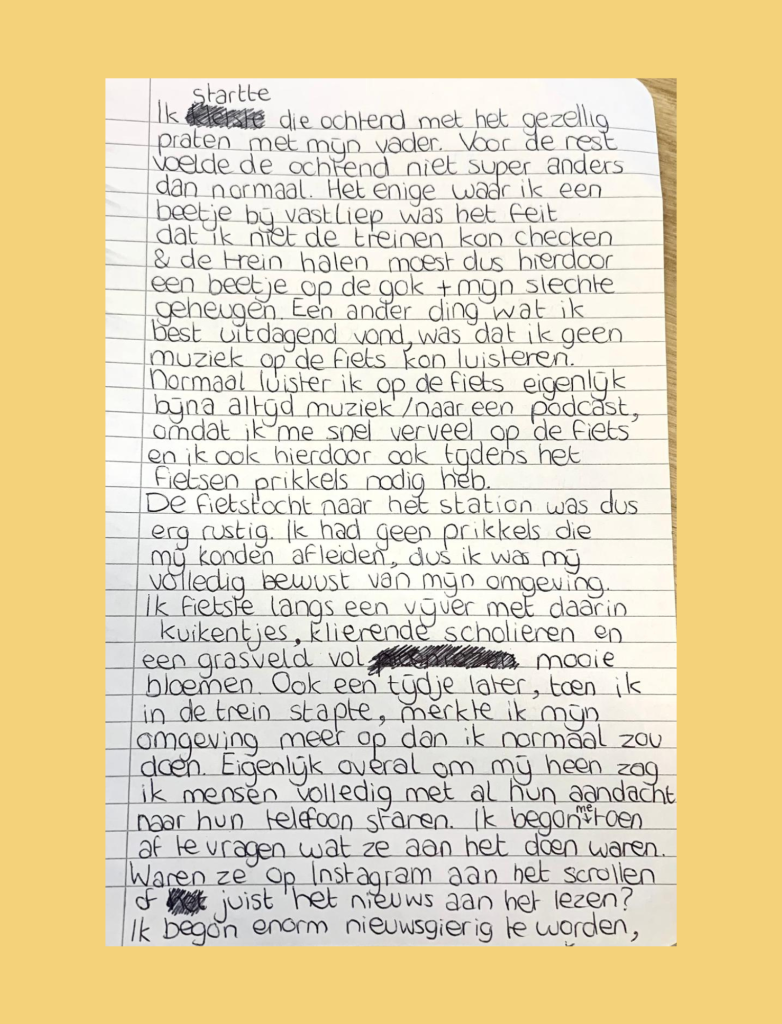 startte
Ik die ochtend met het gezellig
praten met mijn vader. Voor de rest
voelde de ochtend niet super anders
dan normaal. Het enige waar ik een
beetje bij vastliep was het feit
dat ik niet de treinen kon checken
& de trein halen moest dus hierdoor
een beetje op de gok + mijn slechte
geheugen. Een ander ding wat ik
best uitdagend vond, was dat ik geen
muziek op de fiets kon luisteren.
Normaal luister ik op de fiets eigenlijk
bijna altijd muziek /naar een podcast,
omdat ik me snel verveel op de fiets
en ik ook hierdoor ook tijdens het
fietsen prikkels nodig heb.
De fietstocht naar het station was dus
erg rustig. Ik had geen prikkels die
mij konden afleiden, dus ik was mij
volledig bewust van mijn omgeving.
Ik fietste langs een vijver met daarin
kuikentjes, klierende scholieren en
een grasveld vol mooie
bloemen. Ook een tijdje later, toen ik
in de trein stapte, merkte ik mijn
omgeving meer op dan ik normaal zou
doen. Eigenlijk overal om mij heen zag
ik mensen volledig met al hun aandacht
naar hun telefoon staren. Ik begon me toen
af te vragen wat ze aan het doen waren.
Waren ze op Instagram aan het scrollen
of juist het nieuws aan het lezen?
Ik begon enorm nieuwsgierig te worden,